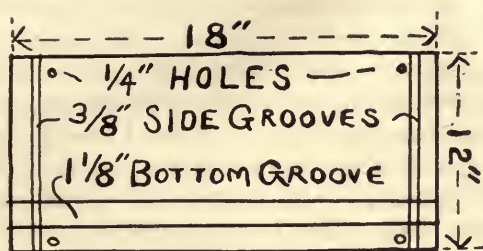 18"
1/4" HOLES
3/8" SIDE GROOVES
1 1/8" BOTTOM GROOVE
12"